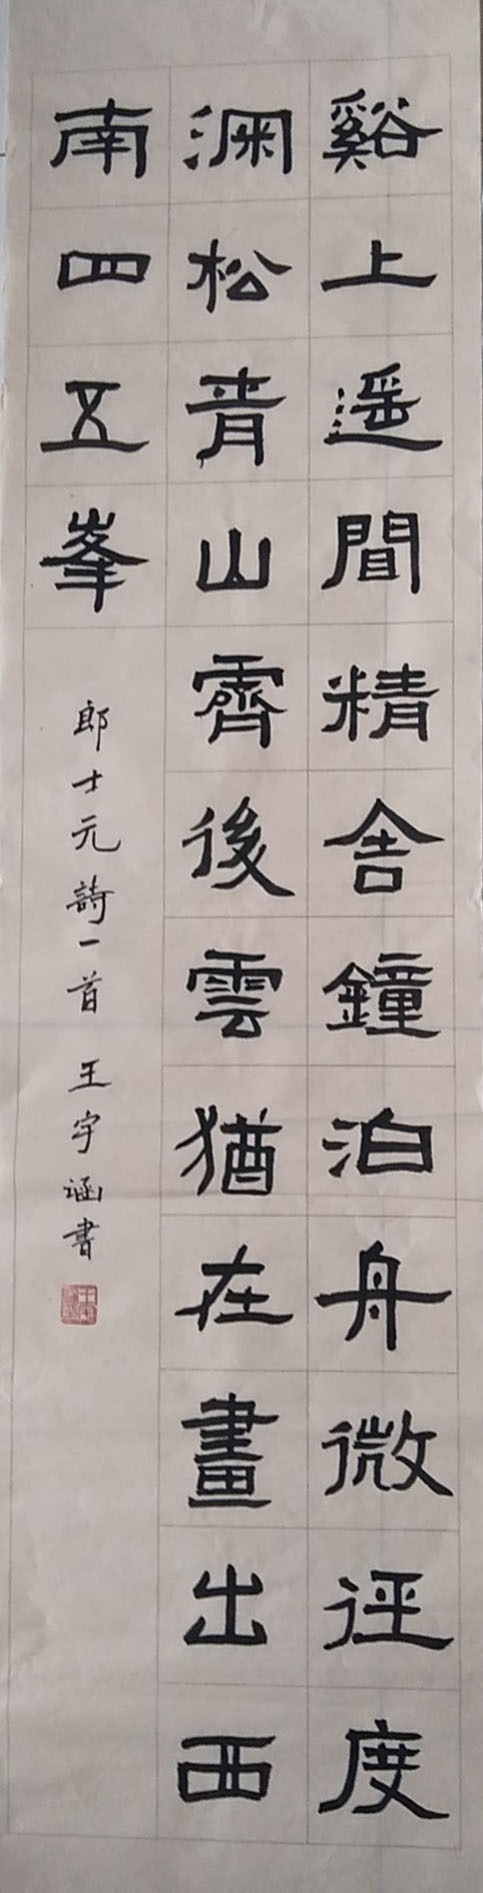 谿上遥聞精舍鐘泊舟微徑度
深松青山霽後雲猶在畫出西
南四五峯
郎士元詩一首 王宇涵書